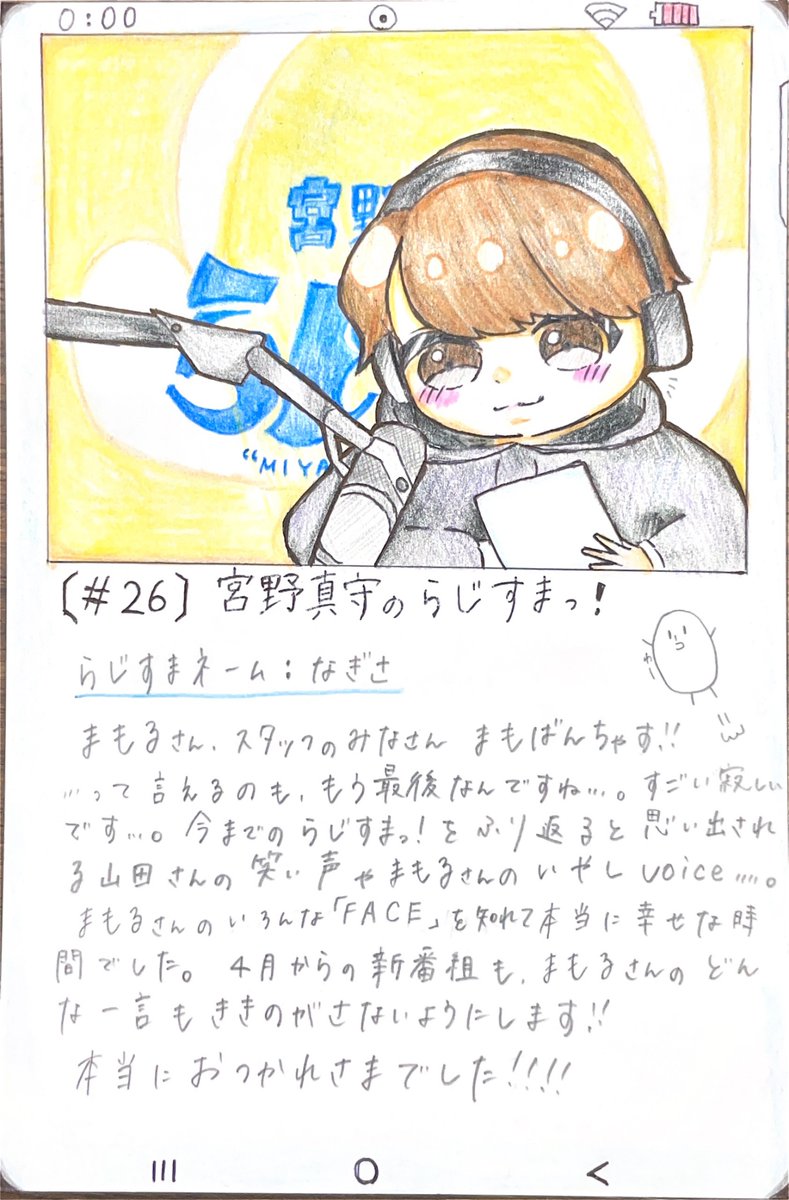 0:00
宮野
らじ
"MIYA
〔#26〕宮野真守のらじすまっ!
らじすまネーム:なぎさ
まもるさん、スタッフのみなさん まもばんちゃす!!
…って言えるのも、もう最後なんですね…。すごい寂しい
です…。今までのらじすまっ!をふり返ると思い出され
る山田さんの笑い声やまもるさんのいやしvoice……。
まもるさんのいろんな「FACE」を知れて本当に幸せな時
間でした。4月からの新番組も、まもるさんのどん
な一言もききのがさないようにします!!
本当におつかれさまでした!!!!